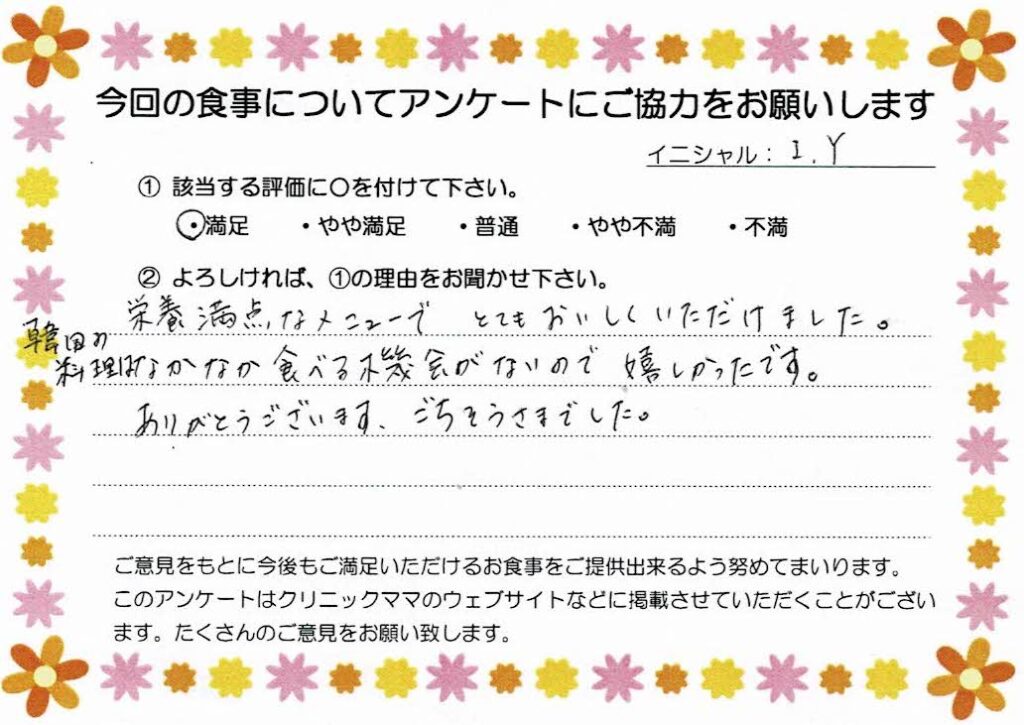 今回の食事についてアンケートにご協力をお願いします
イニシャル： I.Y
① 該当する評価に〇を付けて下さい。
・満足 ・やや満足 ・普通 ・やや不満 ・不満
② よろしければ、①の理由をお聞かせ下さい。
栄養満点なメニューで とてもおいしくいただけました。
韓国の
料理はなかなか食べる機会がないので 嬉しかったです。
ありがとうございます、ごちそうさまでした。
ご意見をもとに今後もご満足いただけるお食事をご提供出来るよう努めてまいります。
このアンケートはクリニックママのウェブサイトなどに掲載させていただくことがござい
ます。たくさんのご意見をお願い致します。